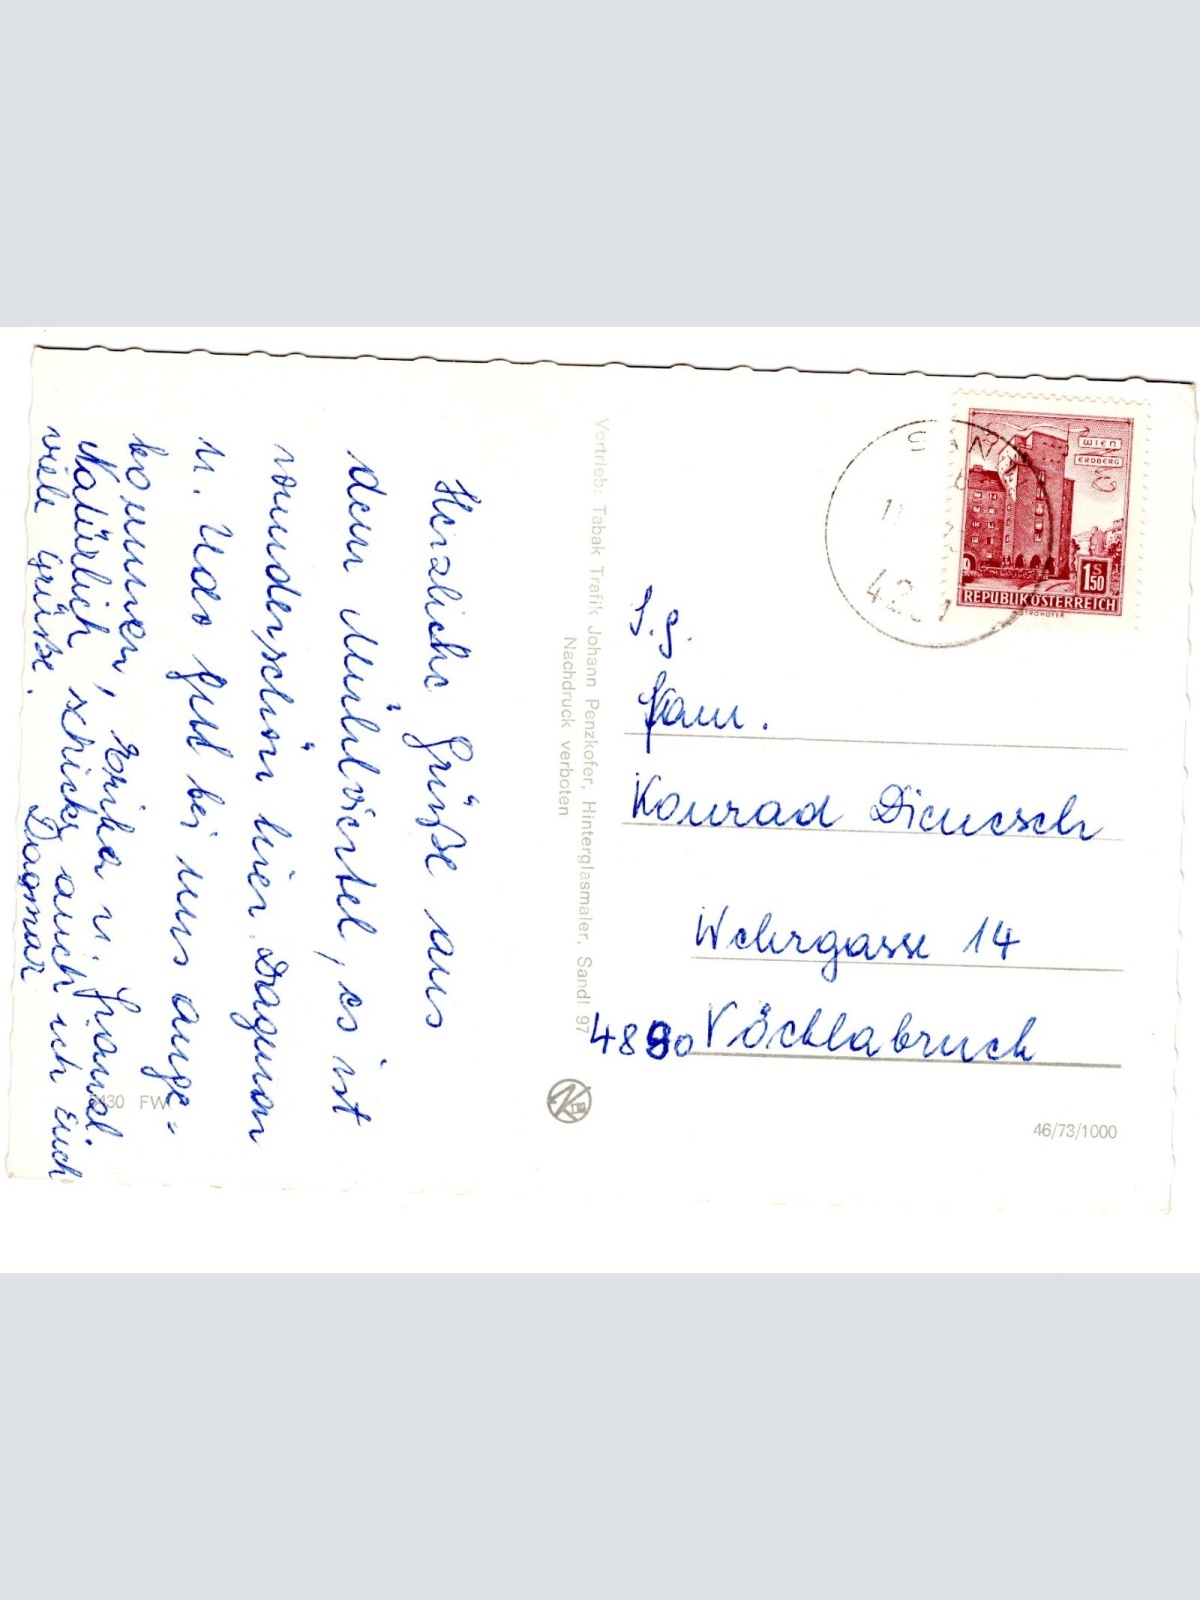 Herzliche Grüße aus
dem Mühlviertel, es ist
wunderschön hier. Dagmar
u. Udo gut bei uns ange=
kommen, Erika u. Hansl.
Natürlich schicke auch ich Euch
viele Grüße.
Dagmar
Vertrieb: Tabak Trafik Johann Penzkofer, Hinterglasmaler, Sandl 97
Nachdruck verboten
WIEN
ERDBERG
1 S 50
REPUBLIK ÖSTERREICH
S.g.
Fam.
Konrad Dienesch
Wehrgasse 14
4880 Vöcklabruck
430 FW
46/73/1000